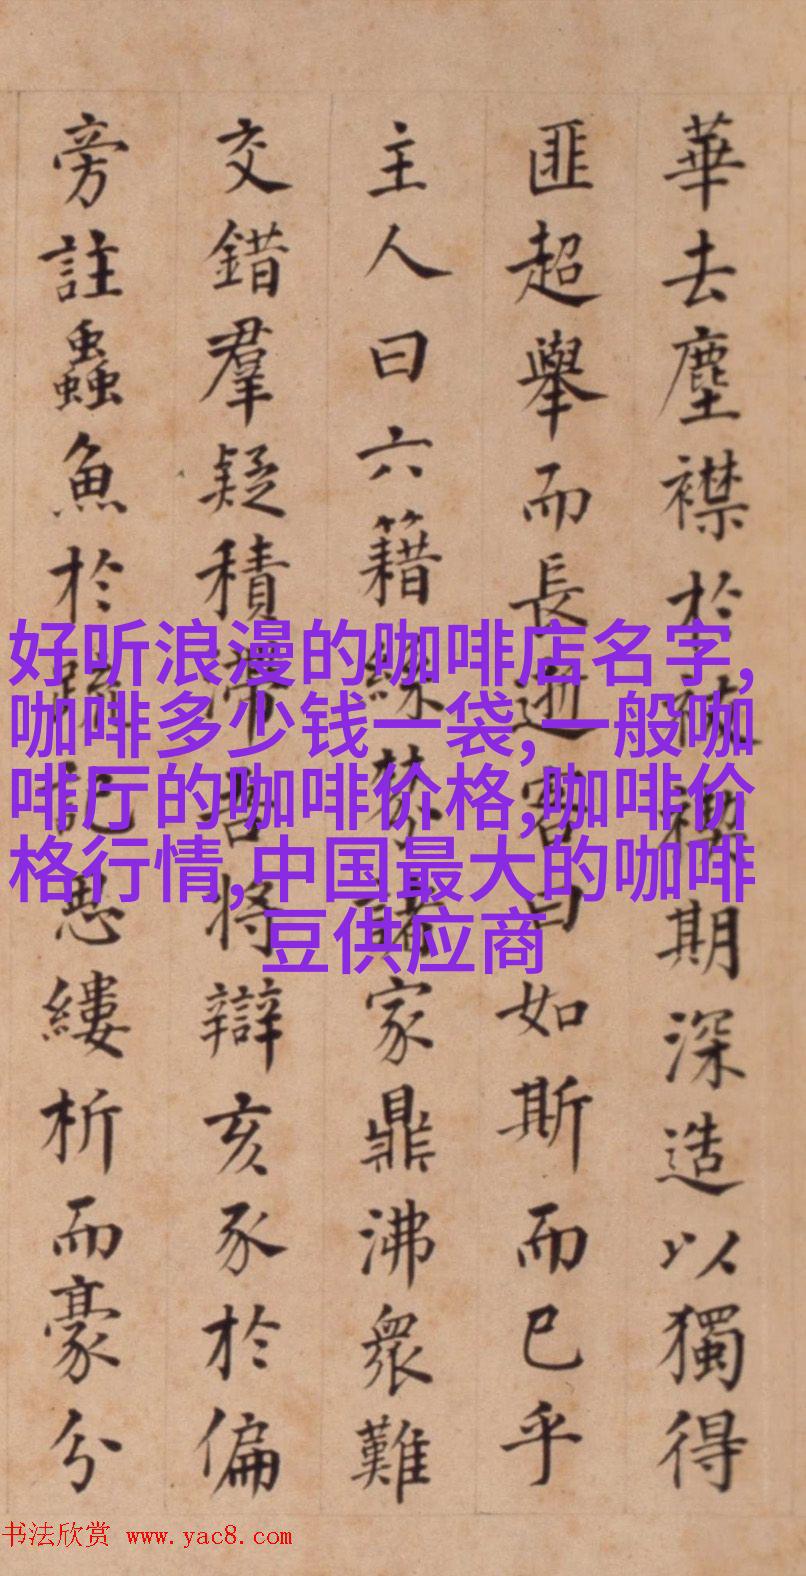 華去塵襟於期深造以獨得
匪超舉而長逝客曰如斯而已乎
主人曰六籍絲棼諸家鼎沸衆難
交錯羣疑積滯吾將辯亥豕於偏
旁註蟲魚於疏記悉縷析而豪分
好听浪漫的咖啡店名字,
咖啡多少钱一袋,一般咖
啡厅的咖啡价格,咖啡价
格行情,中国最大的咖啡
豆供应商
书法欣赏 www.yac8.com